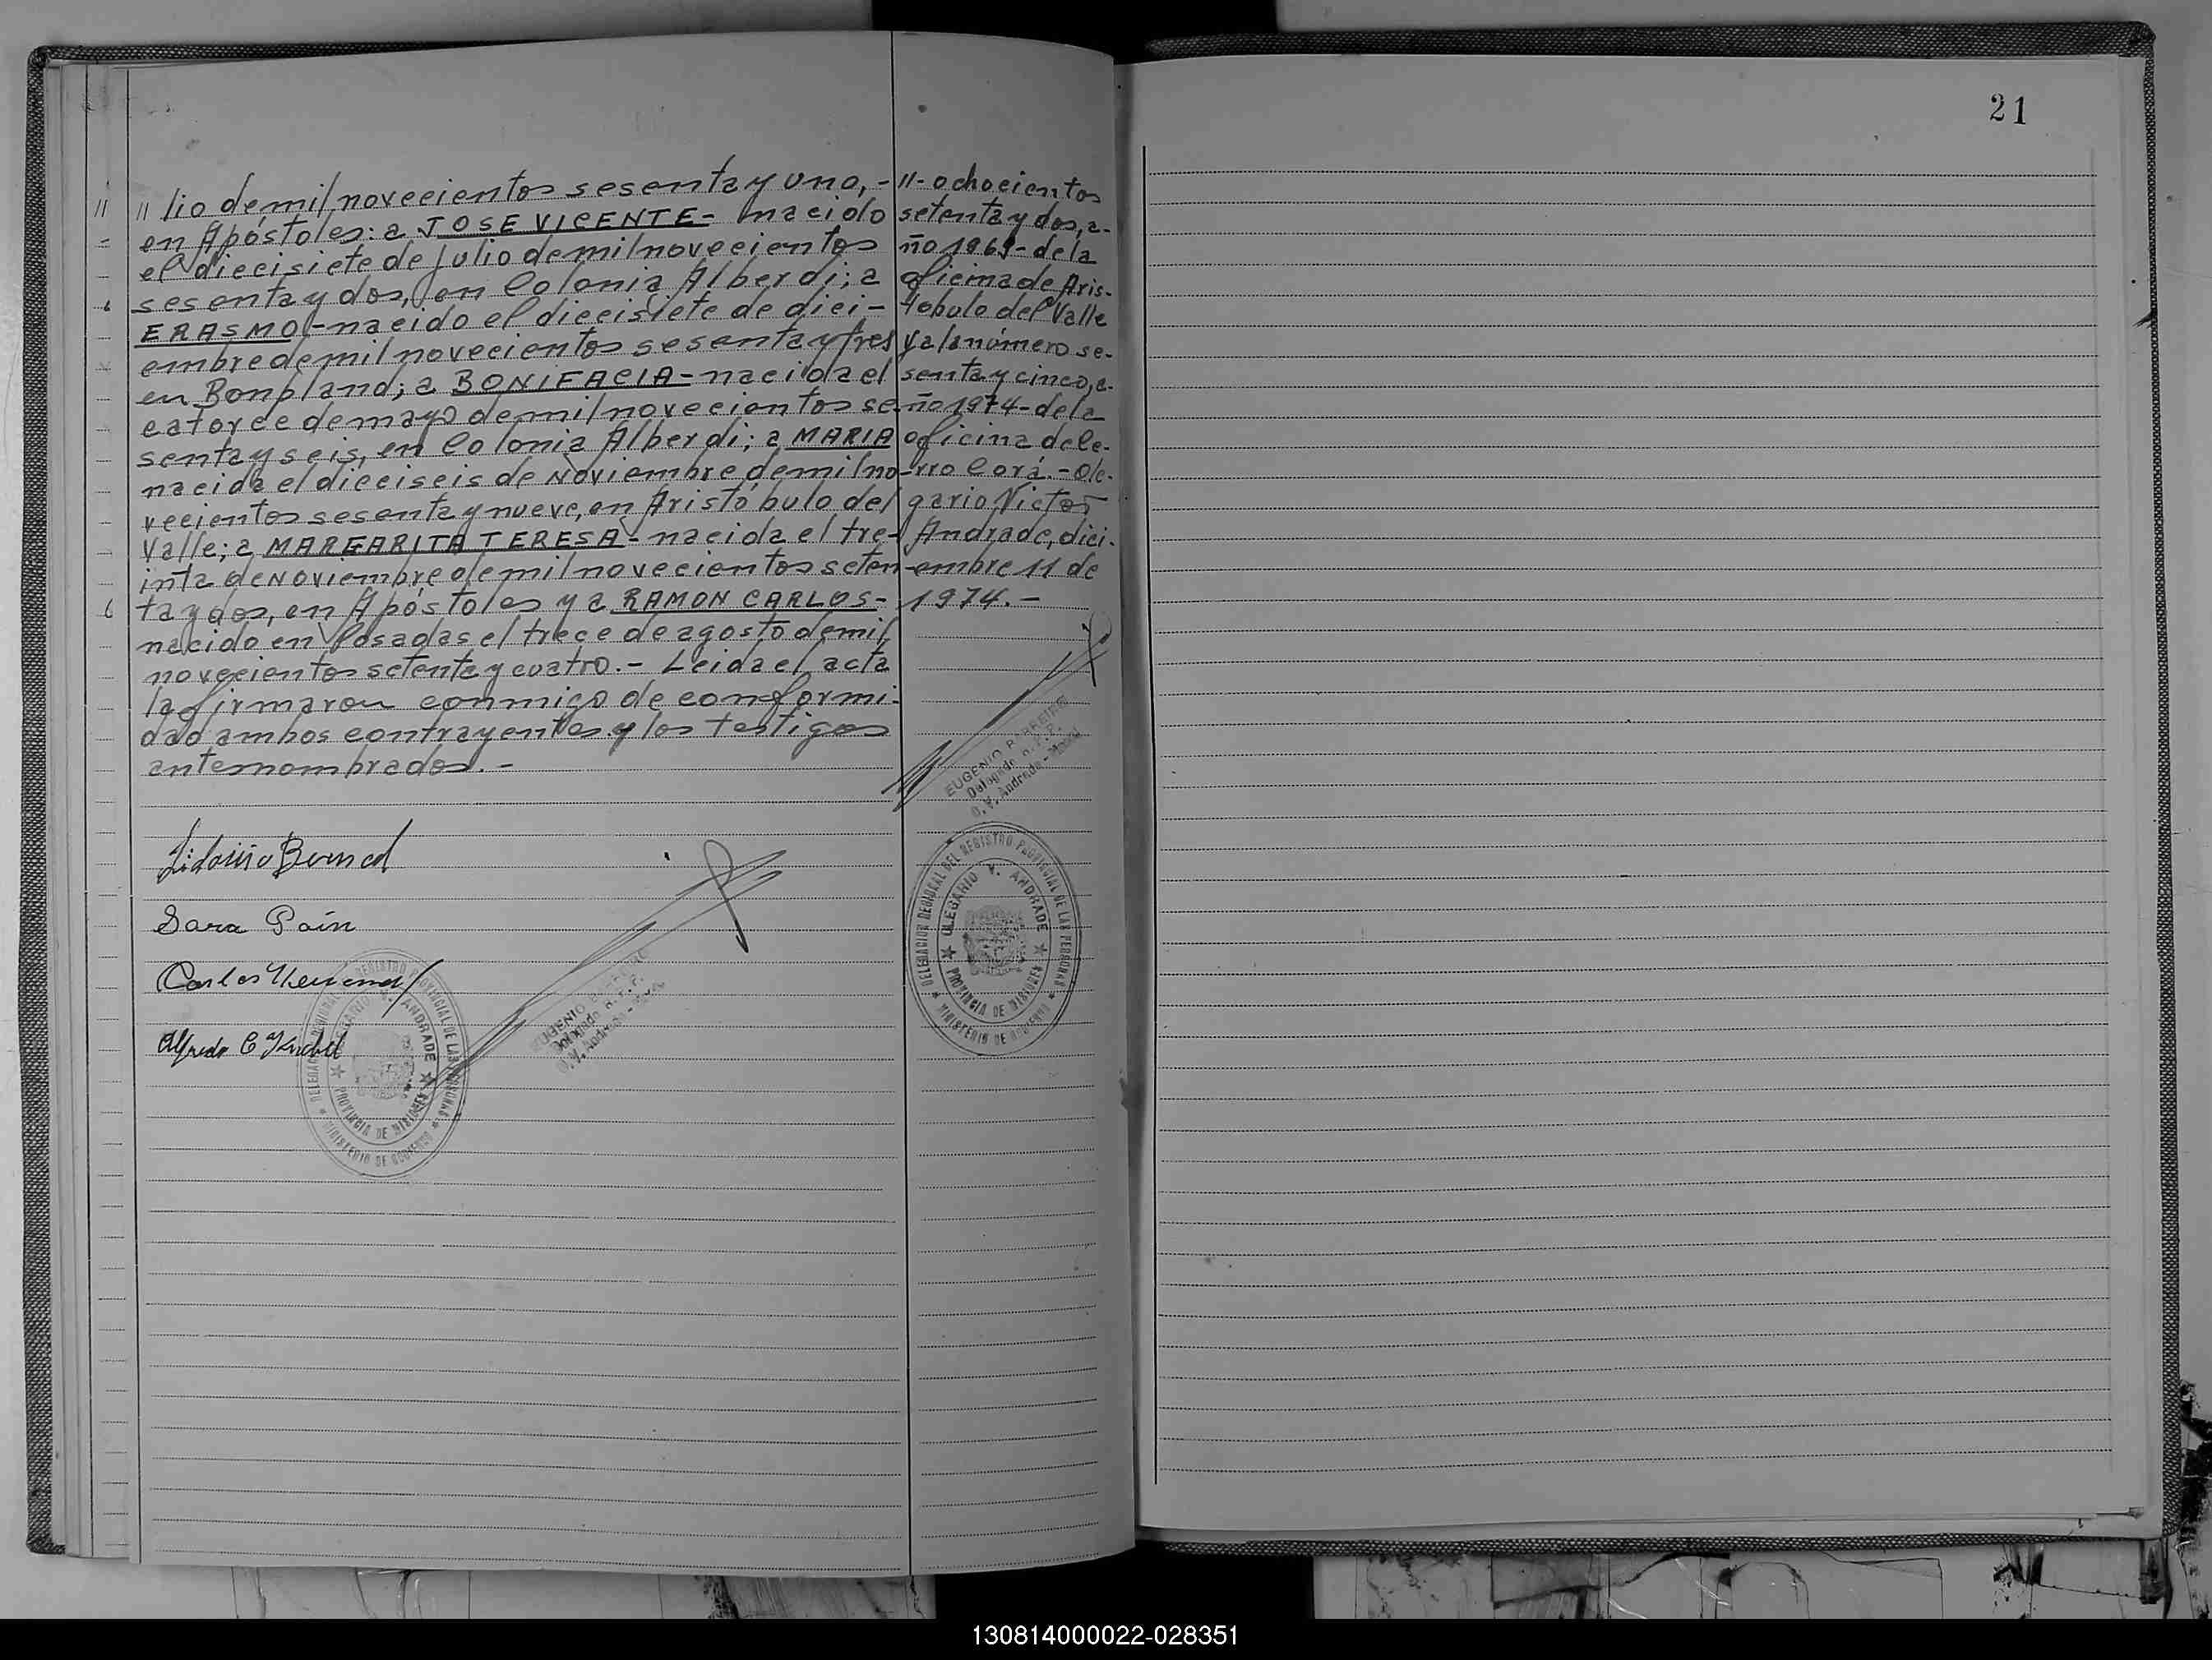 21
11 11 lio de mil novecientos sesenta y uno, -
en Apóstoles: a JOSE VICENTE - nacido
el diecisiete de julio de mil novecientos
sesenta y dos, en Colonia Alberdi; a
ERASMO - nacido el diecisiete de dici-
embre de mil novecientos sesenta y tres
en Bonpland; a BONIFACIA - nacida el
catorce de mayo de mil novecientos se-
senta y seis, en Colonia Alberdi; a MARIA
nacida el dieciseis de Noviembre de mil no-
vecientos sesenta y nueve, en Aristóbulo del
Valle; a MARGARITA TERESA - nacida el tre-
inta de Noviembre de mil novecientos seten-
ta y dos, en Apóstoles y a RAMON CARLOS -
nacido en Posadas el trece de agosto de mil
novecientos setenta y cuatro. - Leida el acta
la firmaron conmigo de conformi-
dad ambos contrayentes y los testigos
antenombrados. -
11 - ochocientos
setenta y dos, a-
ño 1969 - de la
oficina de Aris-
tobulo del Valle
y al número se-
senta y cinco, a-
ño 1974 - de la
oficina de Ce-
rro Corá. - Ole-
gario Victor
Andrade, dici-
embre 11 de
1974. -
EUGENIO
Delegado R.P.P.
O. V. Andrade - Mnes.
DELEGACION REGIONAL DEL REGISTRO PROVINCIAL DE LAS PERSONAS
OLEGARIO V. ANDRADE
PROVINCIA DE MISIONES
MINISTERIO DE GOBIERNO
Sara Pain
Carlos
Alfredo C
EUGENIO
Delegado R.P.P.
O. V. Andrade -
DELEGACION REGIONAL DEL REGISTRO PROVINCIAL DE LAS PERSONAS
OLEGARIO V. ANDRADE
PROVINCIA DE MISIONES
MINISTERIO DE GOBIERNO
130814000022-028351